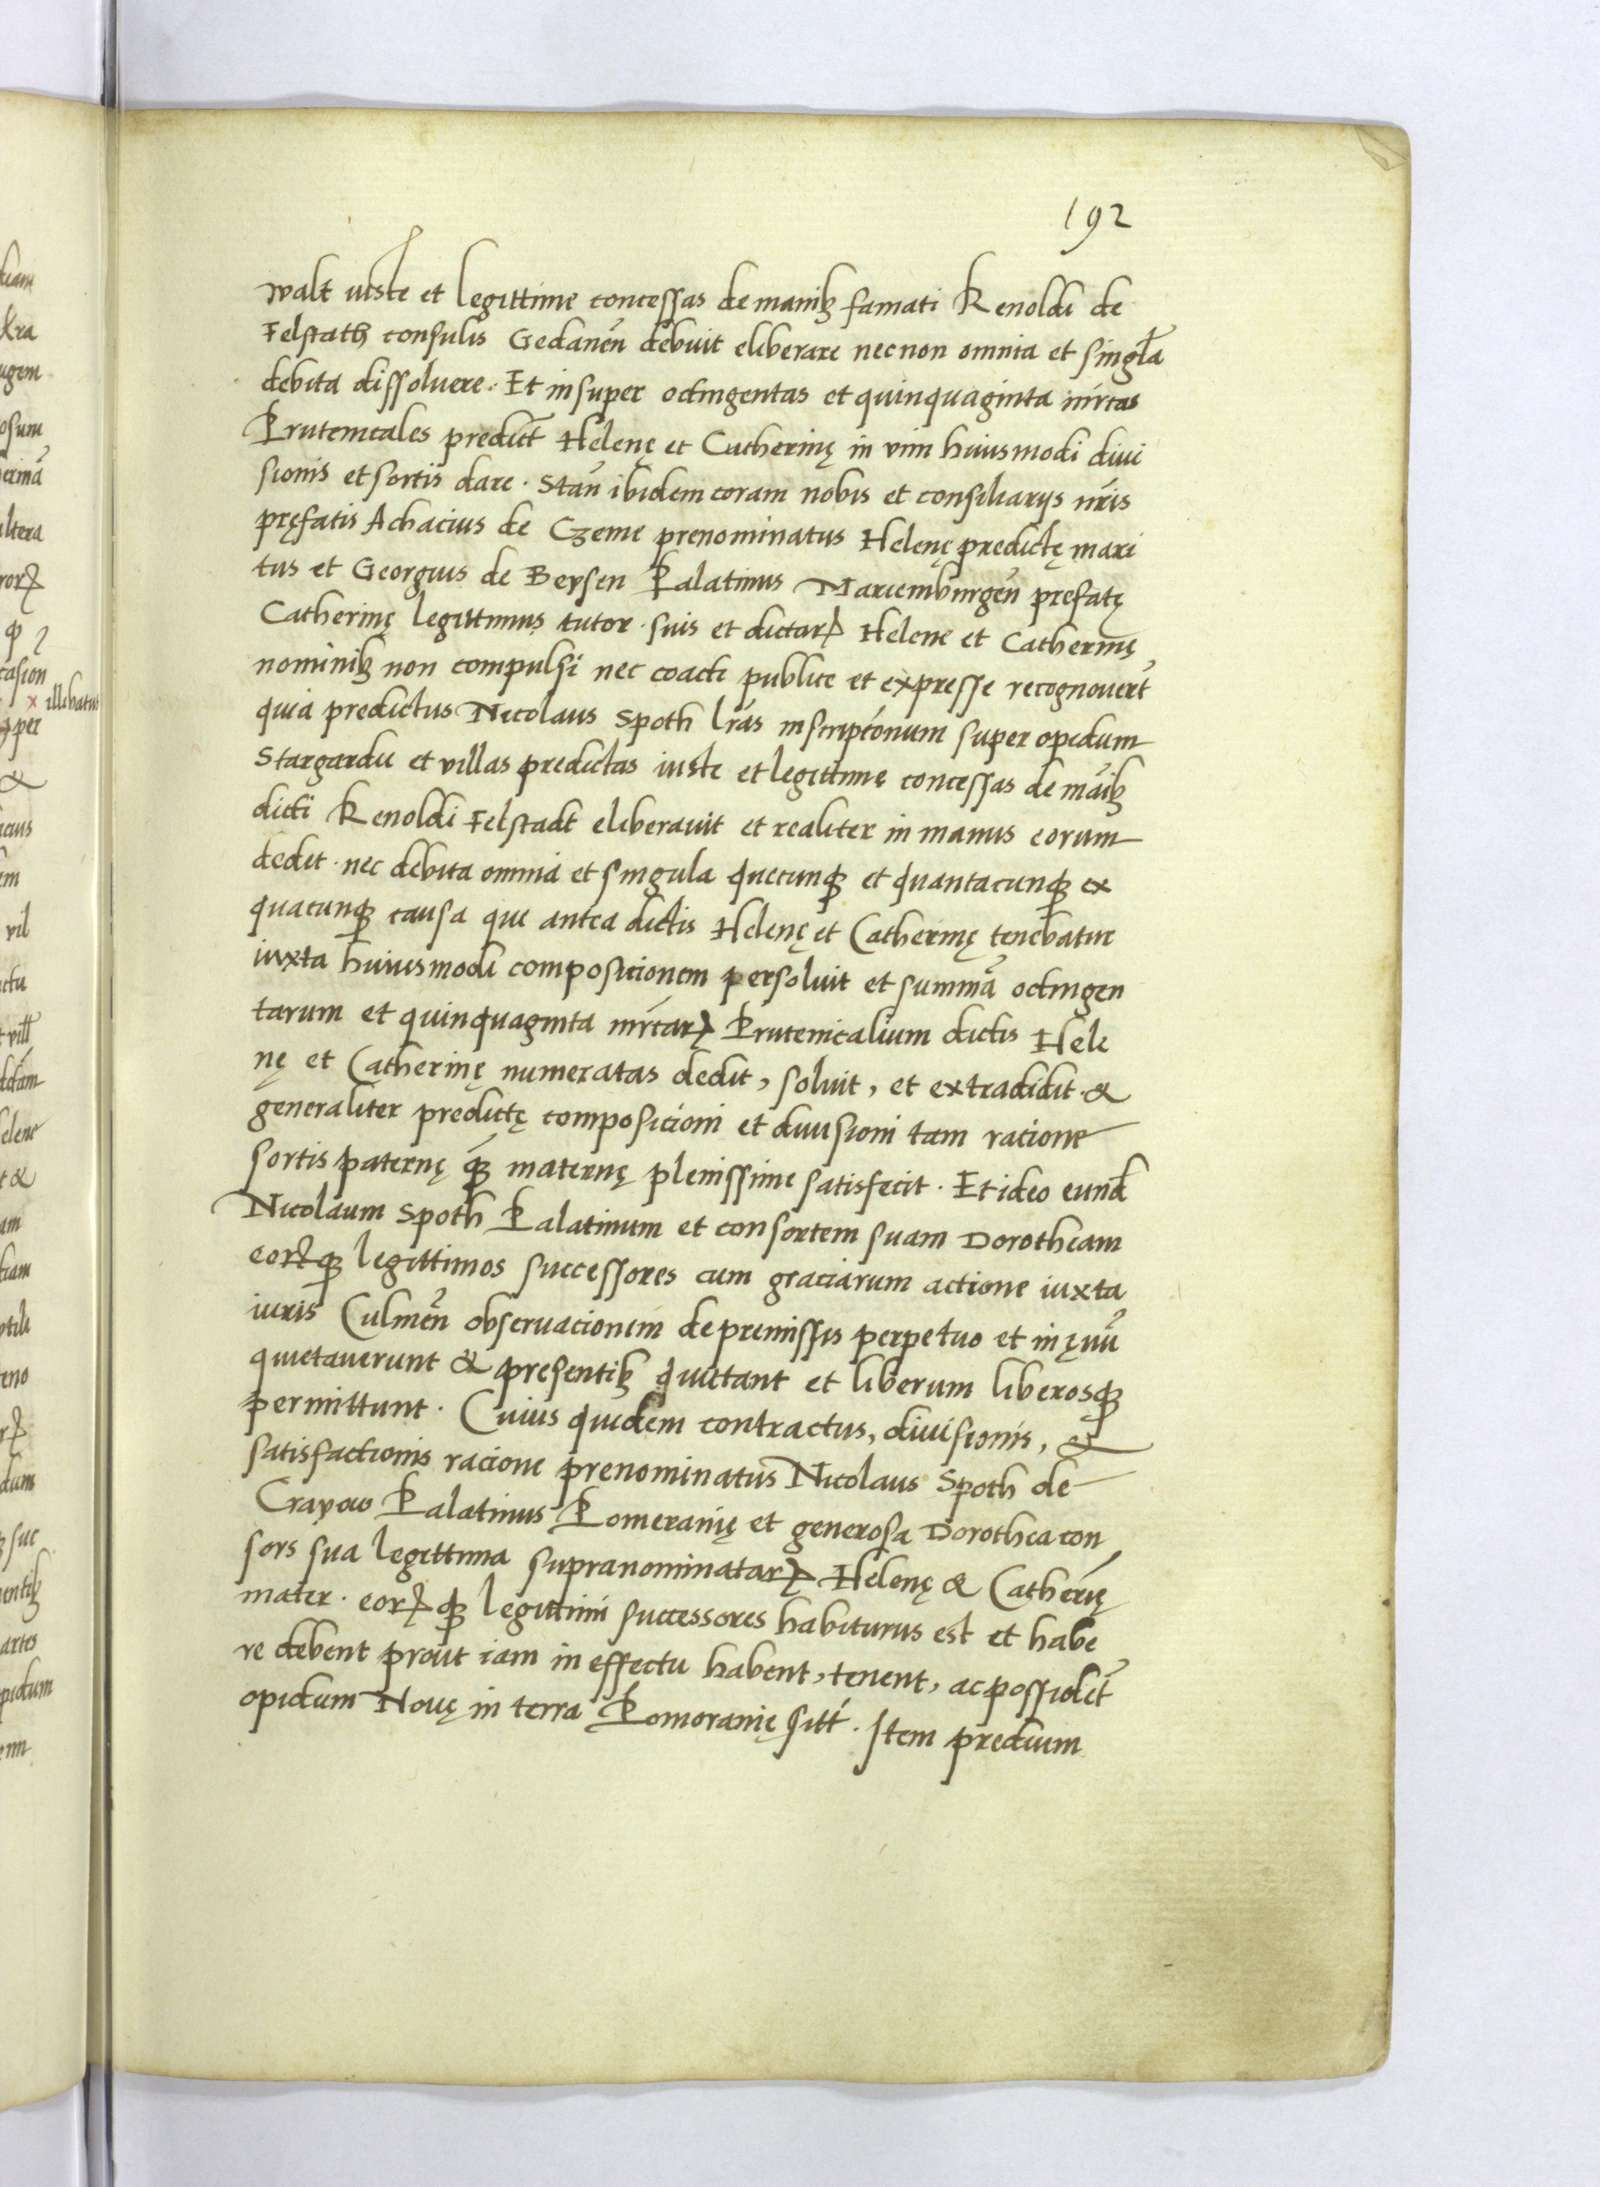 192
walt iuste et legittime concessas de manibꝫ famati Renoldi de
Felstath consulis Gedanen̄ debuit eliberare necnon omnia et singl̄a
debita dissoluere. Et insuper octingentas et quinquaginta mr̄cas
Prutenicales predict̄ Helenę et Catherinę in vim huiusmodi diui
sionis et sortis dare. Stan̄ ibidem coram nobis et consiliarijs nr̄is
pręfatis Achacius de Czeme prenominatus Helenę predictę mari
tus et Georgius de Beysen Palatinus Mariemburgen̄ prefatę
Catherinę legittimus tutor. suis et dictarꝝ Helene et Catherinę
nominibꝫ non compulsi nec coacti publice et expresse recognouer̄t
quia predictus Nicolaus Spoth lr̄as inscripc̄onum super opidum
Stargardie et villas predictas iuste et legittime concessas de man̄ibꝫ
dicti Renoldi Felstadt eliberauit et realiter in manus eorum
dedit. nec debita omnia et singula quecunqꝫ et quantacunqꝫ ex
quacunqꝫ causa que antea dictis Helenę et Catherinę tenebatur
iuxta huiusmodi composicionem persoluit et summā octingen
tarum et quinquaginta mr̄carꝝ Prutenicalium dictis Hele
nę et Catherinę numeratas dedit, soluit, et extradidit. &
generaliter predictę composicioni et diuisioni tam racione
sortis paternę qꝫ maternę plenissime satisfecit. Et ideo eund̄
Nicolaum Spoth Palatinum et consortem suam Dorotheam
eorꝝqꝫ legittimos successores cum graciarum actione iuxta
iuris Culmen̄ obseruacionem de premissis perpetuo et in ęuū
quietauerunt & presentibꝫ quittant et liberum liberosqꝫ
permittunt. Cuius quidem contractus, diuisionis, &
satisfactionis racione prenominatus Nicolaus Spoth de
Crayow Palatinus Pomeranię et generosa Dorothea con
sors sua legittima supranominatarꝝ Helenę & Catherīę
mater. eorꝝqꝫ legittimi successores habiturus est et habe
re debent prout iam in effectu habent, tenent, ac possidēt
opidum Nouę in terra Pomoranię sitt̄. Item predium